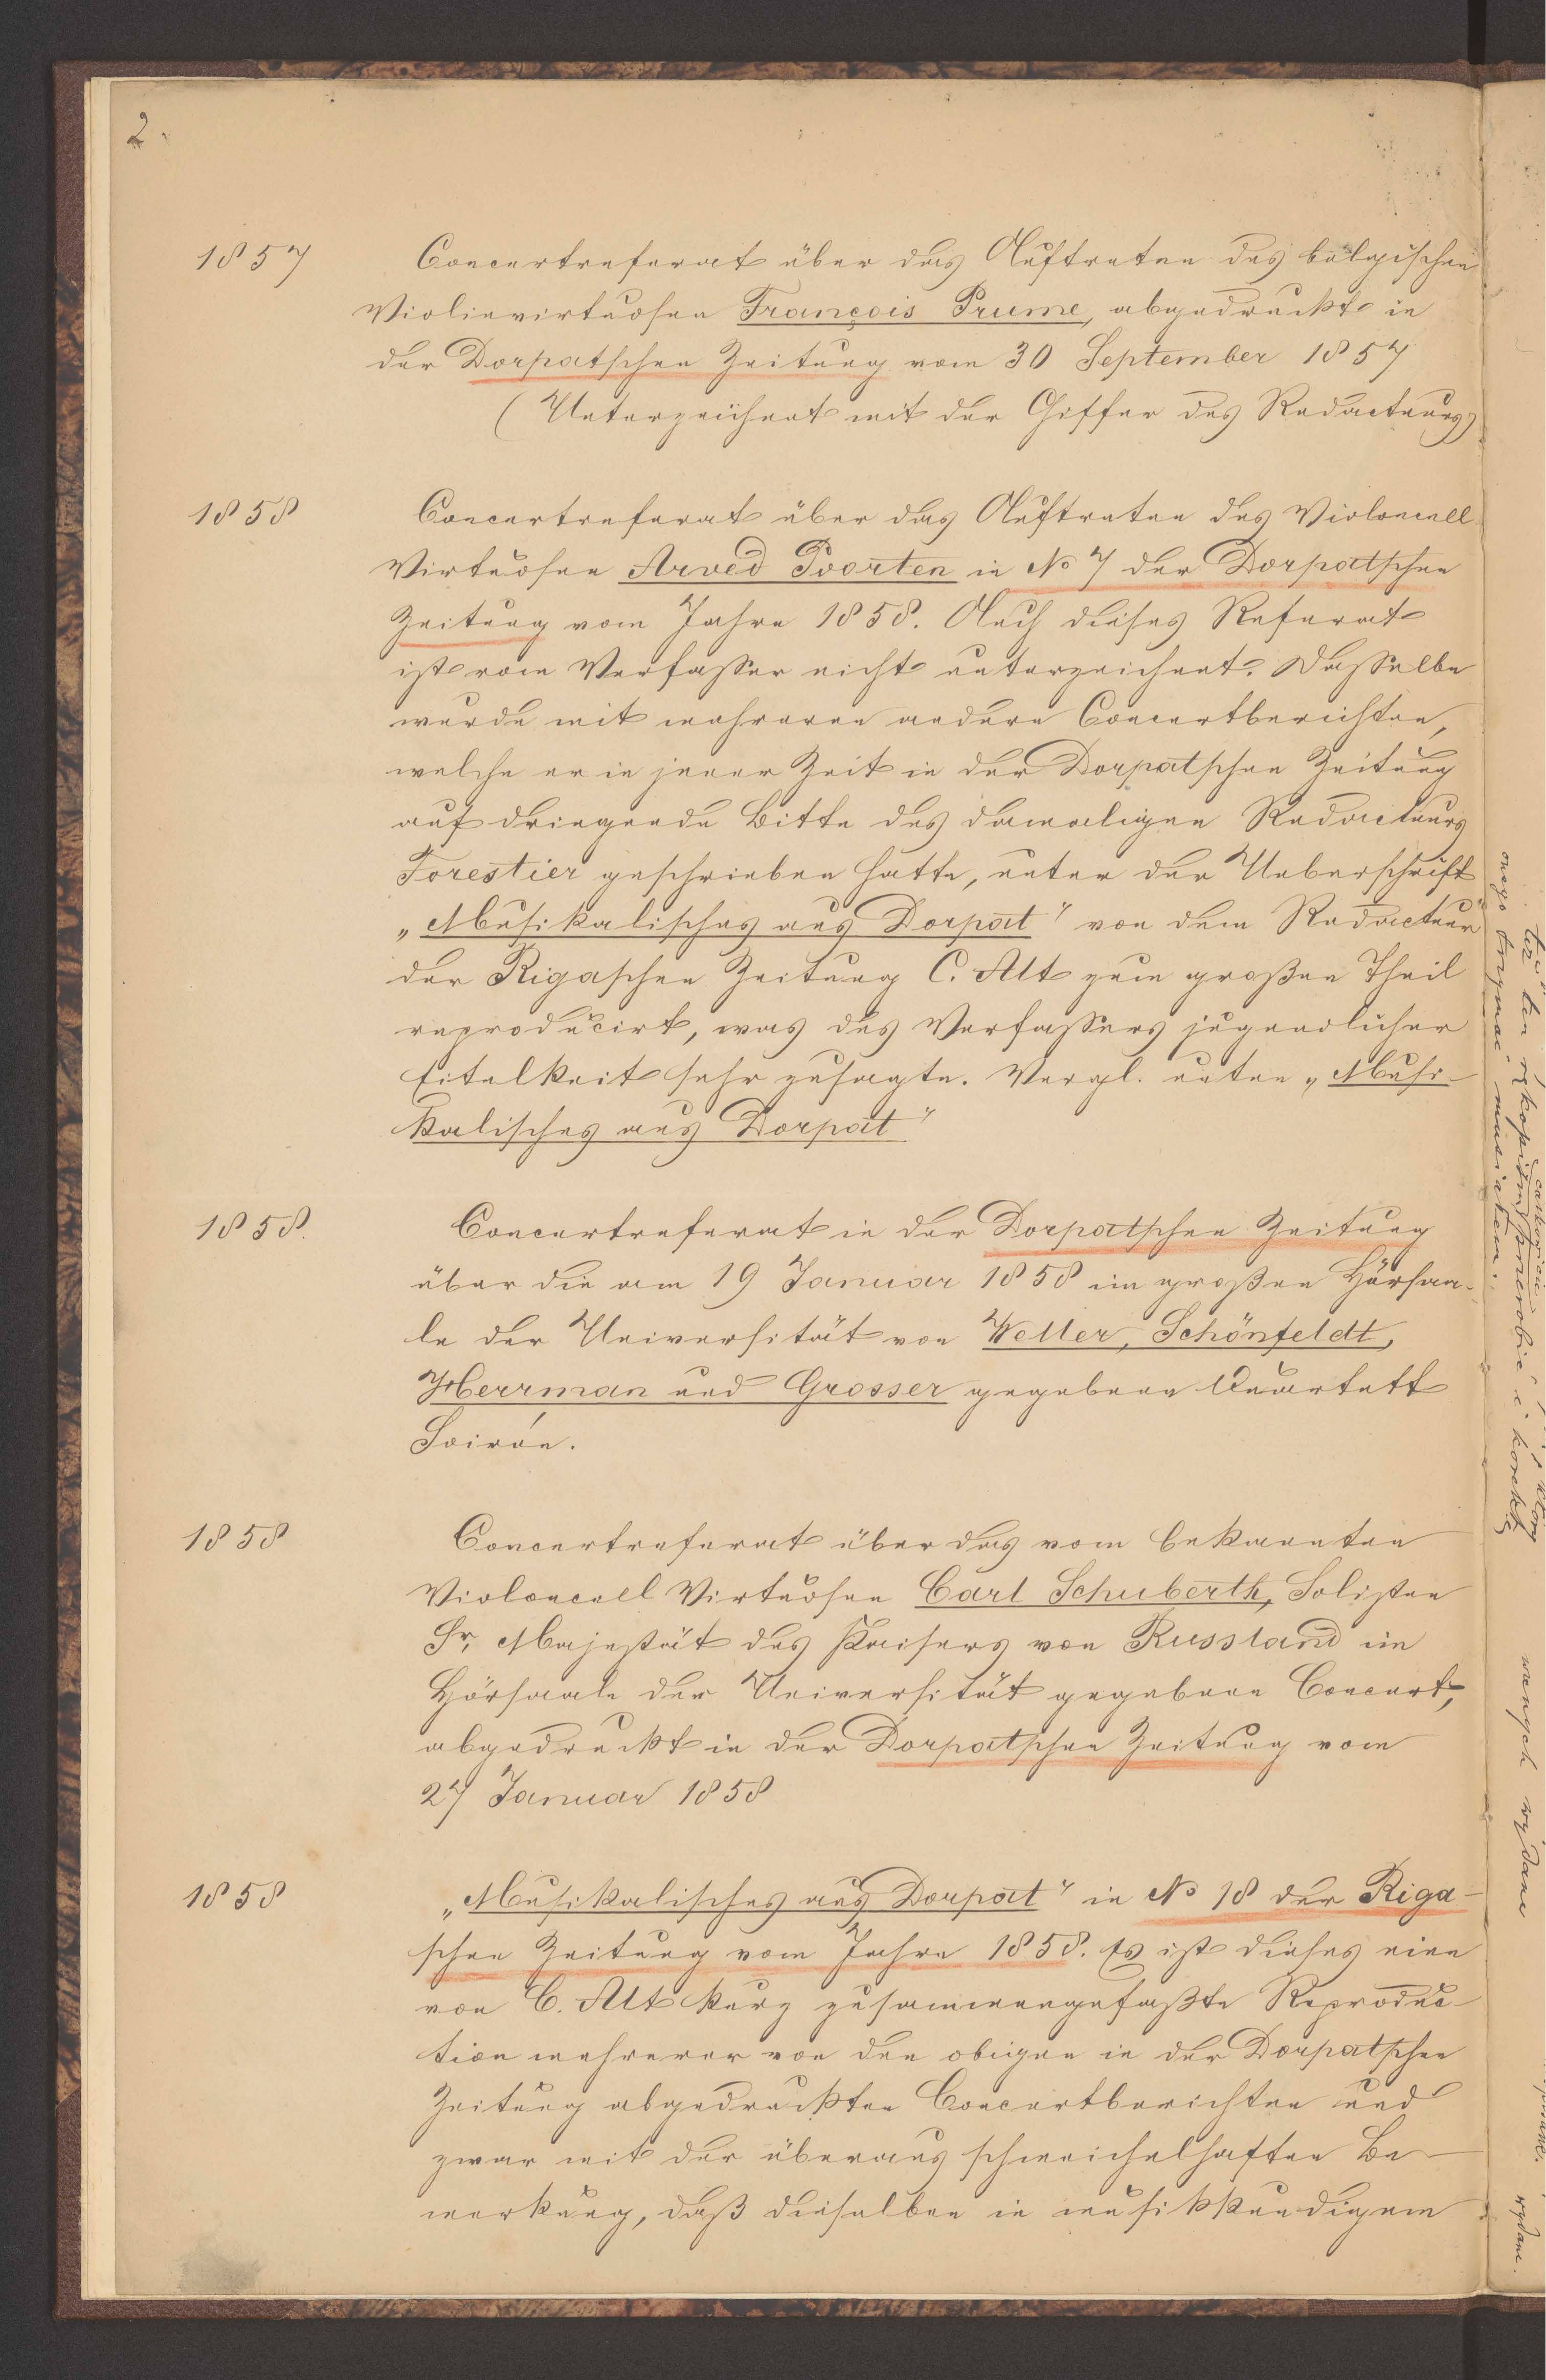 2.
1857 Concertreferat über das Auftreten des belgischen
Violinvirtuosen François Prume, abgedruckt in
der Dorpatschen Zeitung vom 30 September 1857
(Unterzeichnet mit der Chiffer des Redacteurs)
1858 Concertreferat über das Auftreten des Violoncell
Virtuosen Arved Poorten in No 7 der Dorpatschen
Zeitung vom Jahre 1858. Auch dieses Referat
ist vom Verfasser nicht unterzeichnet. Dasselbe
wurde mit mehreren andern Concertberichten,
welche er in jener Zeit in der Dorpatschen Zeitung
auf dringende Bitte des damaligen Redacteurs
Forestier geschrieben hatte, unter der Ueberschrift
„Musikalisches aus Dorpat" von dem Redacteur
der Rigaschen Zeitung C. Alt zum großen Theil
reproducirt, was des Verfassers jugendlicher
Eitelkeit sehr zusagte. Vergl. unten „Musi-
kalisches aus Dorpat"
1858. Concertreferat in der Dorpatschen Zeitung
über die am 19 Januar 1858 im großen Hörsaa-
le der Universität von Weller, Schönfeldt,
Herrman und Grosser gegebene Quartett
Soirée.
1858 Concertreferat über das vom bekannten
Violoncell Virtuosen Carl Schuberth, Solisten
Sr. Majestät des Kaisers von Russland im
Hörsaale der Universität gegebene Concert,
abgedruckt in der Dorpatschen Zeitung vom
27 Januar 1858
1858 „Musikalisches aus Dorpat" in No 18 der Riga-
schen Zeitung vom Jahre 1858. Es ist dieses eine
von C. Alt kurz zusammengefaßte Reproduc-
tion mehrerer von den obigen in der Dorpatschen
Zeitung abgedruckten Concertberichten und
zwar mit der überaus schmeichelhaften Be-
merkung, daß dieselben in musikkundigem